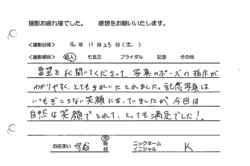 撮影お疲れ様でした。 感想をお願いいたします。
撮影日時 元年 11月 23日(土)
撮影種類 成人 七五三 ブライダル 記念 その他
要望をお聞きくださって、写真のポーズの指示が
わかりやすく、とてもきれいにとれました。記念写真は
いつもぎこちない笑顔になっていましたが、今回は
自然な笑顔でとれていて、とても満足でした!
お住まい 守谷 市
ニックネーム
イニシャル K